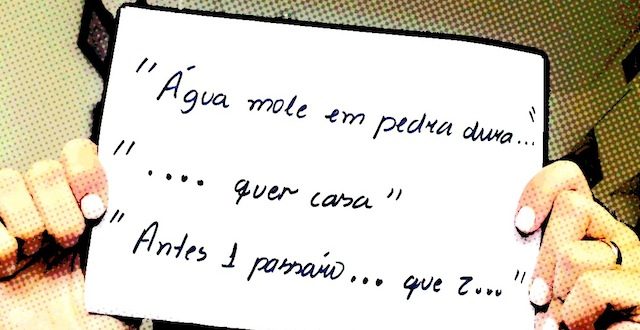 "Água mole em pedra dura..."
".... quer casa"
"Antes 1 passáro... que 2..."